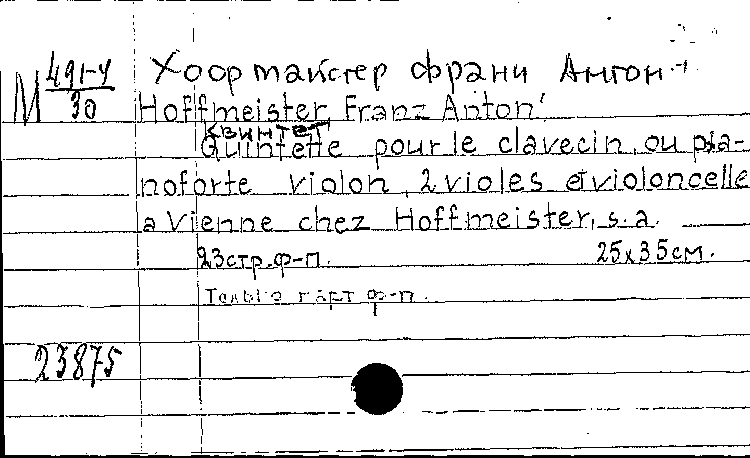 М 491-У
30
Хоормайстер Франц Антон
Hoffmeister, Franz Anton
Квинтет
Quintette pour le clavecin, ou pia-
noforte violon, 2 violes et violoncelle
a Vienne chez Hoffmeister, s.a.
23стр. ф-п. 25x35см.
Только парт ф-п.
23875